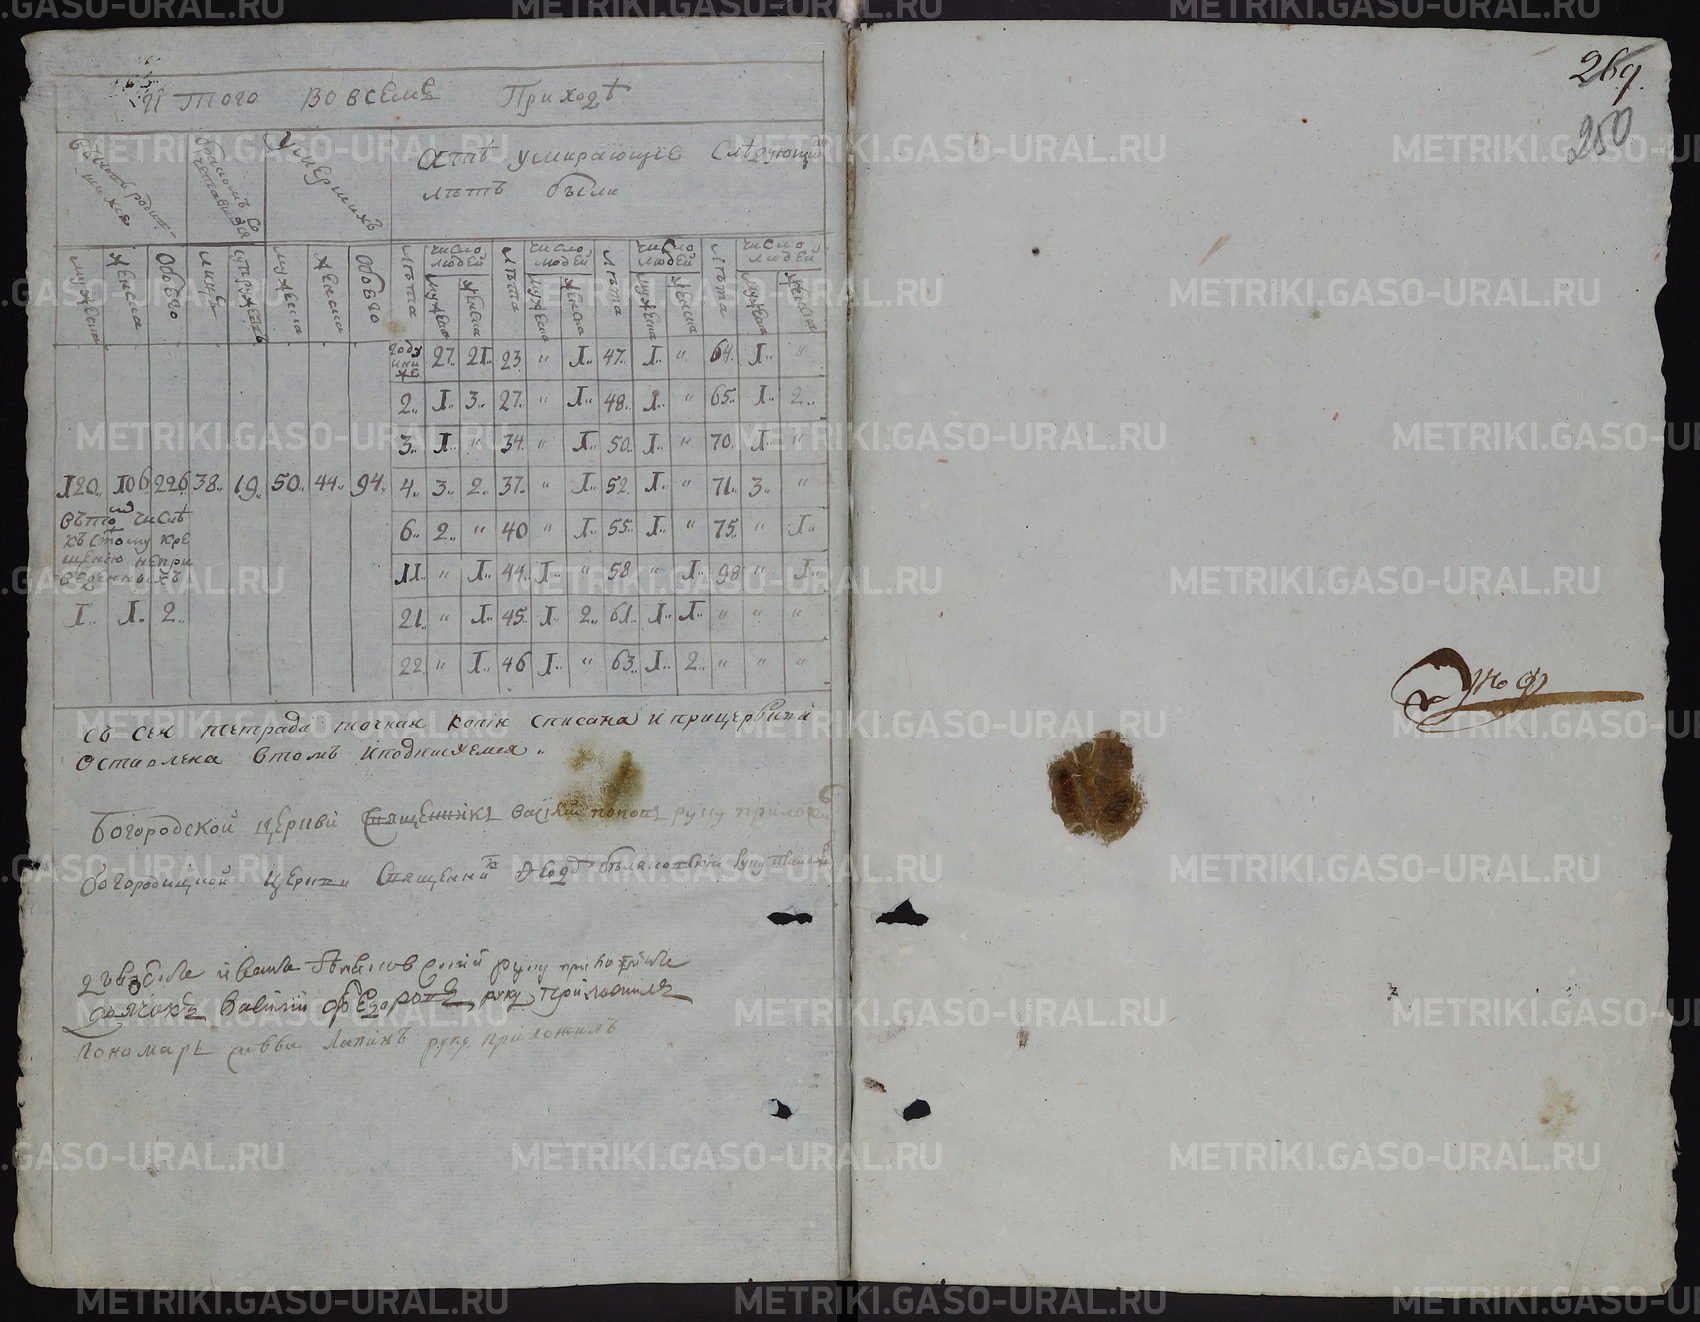 Итого во всемъ Приходѣ
въ томъ родившихся
бракомъ сочетавшихся
Умершихъ
а тѣ умирающіе слѣдующихъ
лѣтъ были
мужеска женска обоего лицъ супружествъ мужеска женска обоего лѣта число людей лѣта число людей лѣта число людей лѣта число людей
мужеска женска мужеска женска мужеска женска мужеска женска
году и ниже 27.. 21.. 23 " 1.. 47.. 1.. " 64. 1.. "
2.. 1.. 3.. 27.. " 1.. 48.. 1.. " 65.. 1.. 2..
3.. 1.. " 34. " 1.. 50.. 1.. " 70. 1.. "
120.. 106 226 38.. 19.. 50.. 44.. 94.. 4.. 3.. 2.. 37.. " 1.. 52. 1.. " 71.. 3.. "
въ томъ числѣ
къ стому кре
щенію непри
веденныхъ
6.. 2.. " 40 " 1.. 55.. 1.. " 75.. " 1..
11.. " 1.. 44.. 1.. " 58 " 1.. 98 " 1..
1.. 1.. 2.. 21.. " 1.. 45.. 1.. 2.. 61.. 1.. 1.. " " "
22.. " 1.. 46 1.. " 63.. 1.. 2.. " " "
съ сей тетради точная копія списана и при церьквѣ
оставлена в томъ и подписуемся
Богородской церкви священникъ василій поповъ руку приложилъ
богородицкой церкви священникъ руку
иванъ руку приложилъ
дьячокъ василій федоровъ руку приложилъ
Пономарь савва Лапинъ руку приложилъ
269.
250